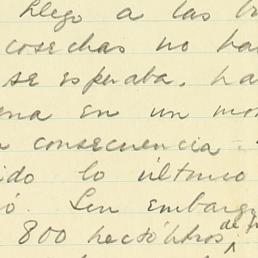 llego a las
cosechas no ha
se esperaba. ha
ena en un mo
consecuencia
ido lo último
ó. Sin embarg
800 hectólitros de